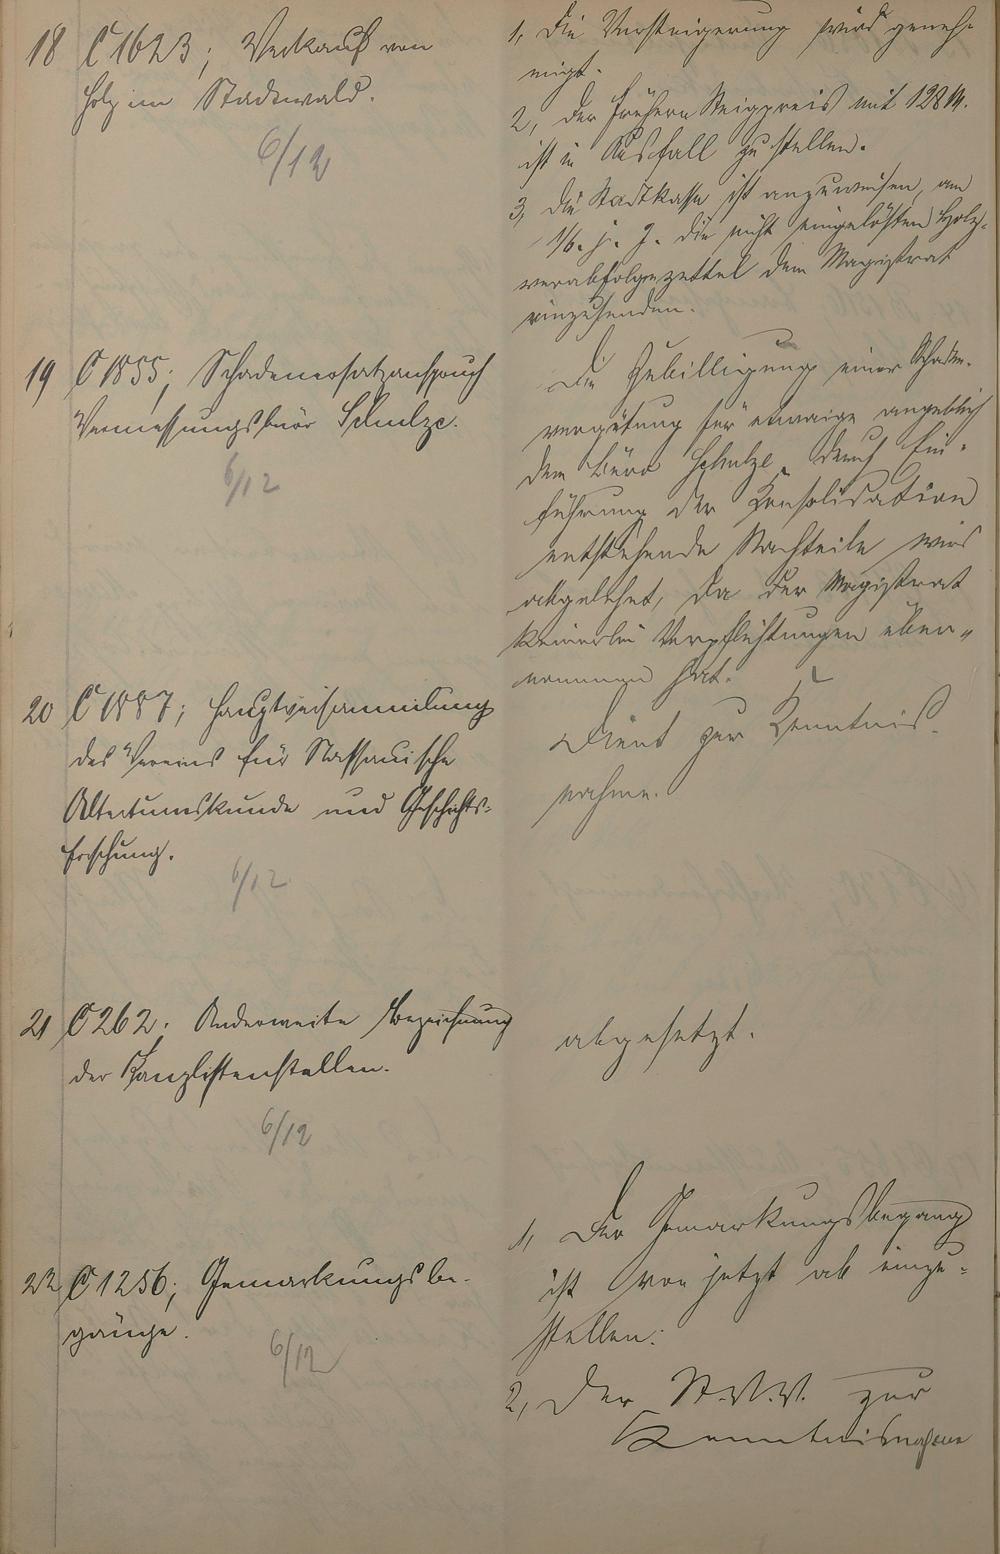 18 C 1623; Verkauf von
Holz im Stadtwald.
6/12
1, Die Versteigerung wird geneh-
migt.
2, der frühere Steigpreis mit 128 M.
ist in Ausfall zu stellen.
3, die Stadtkasse ist anzuweisen, am
1/6. j. J. die nicht eingelösten Holz-
verabfolgezettel dem Magistrat
einzusenden.
19 C 1855; Schadenersatzanspruch
Vermessungsbüro Schulze.
6/12
Die Zubilligung einer Schaden-
vergütung für etwaige angeblich
dem Büro Schulze durch Ein-
führung der Konsolidation
entstehende Nachteile wird
abgelehnt, da der Magistrat
keinerlei Verpflichtungen über-
nommen hat.
20 C 1887; Hauptversammlung
des Vereins für Nassauische
Altertumskunde und Geschichts-
forschung.
6/12
Dient zur Kenntnis-
nahme.
21 C 262. Anderweite Bezeichnung
der Kanzlistenstellen.
6/12
abgesetzt.
22 C 1256; Gemarkungsbe-
gänge.
6/12
1, Der Gemarkungsbegang
ist von jetzt ab einzu-
stellen.
2, Der St.V.V. zur
Kenntnisnahme